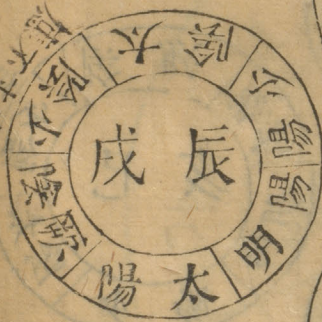 辰戌
太陽
陽明
少陽
太陰
少陰
厥陰